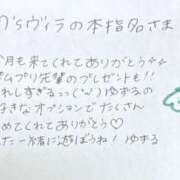 O'sヴィラの本指名さま
今月も来てくれてありがとう
ポムプリ先輩のプレゼントも!!
うれしすぎるっっ(˘ᵕ˘) ゆずるの
好きなオプションでたくさん
せめてくれてありがとう♡
また一緒に遊ぼうね! ゆずる